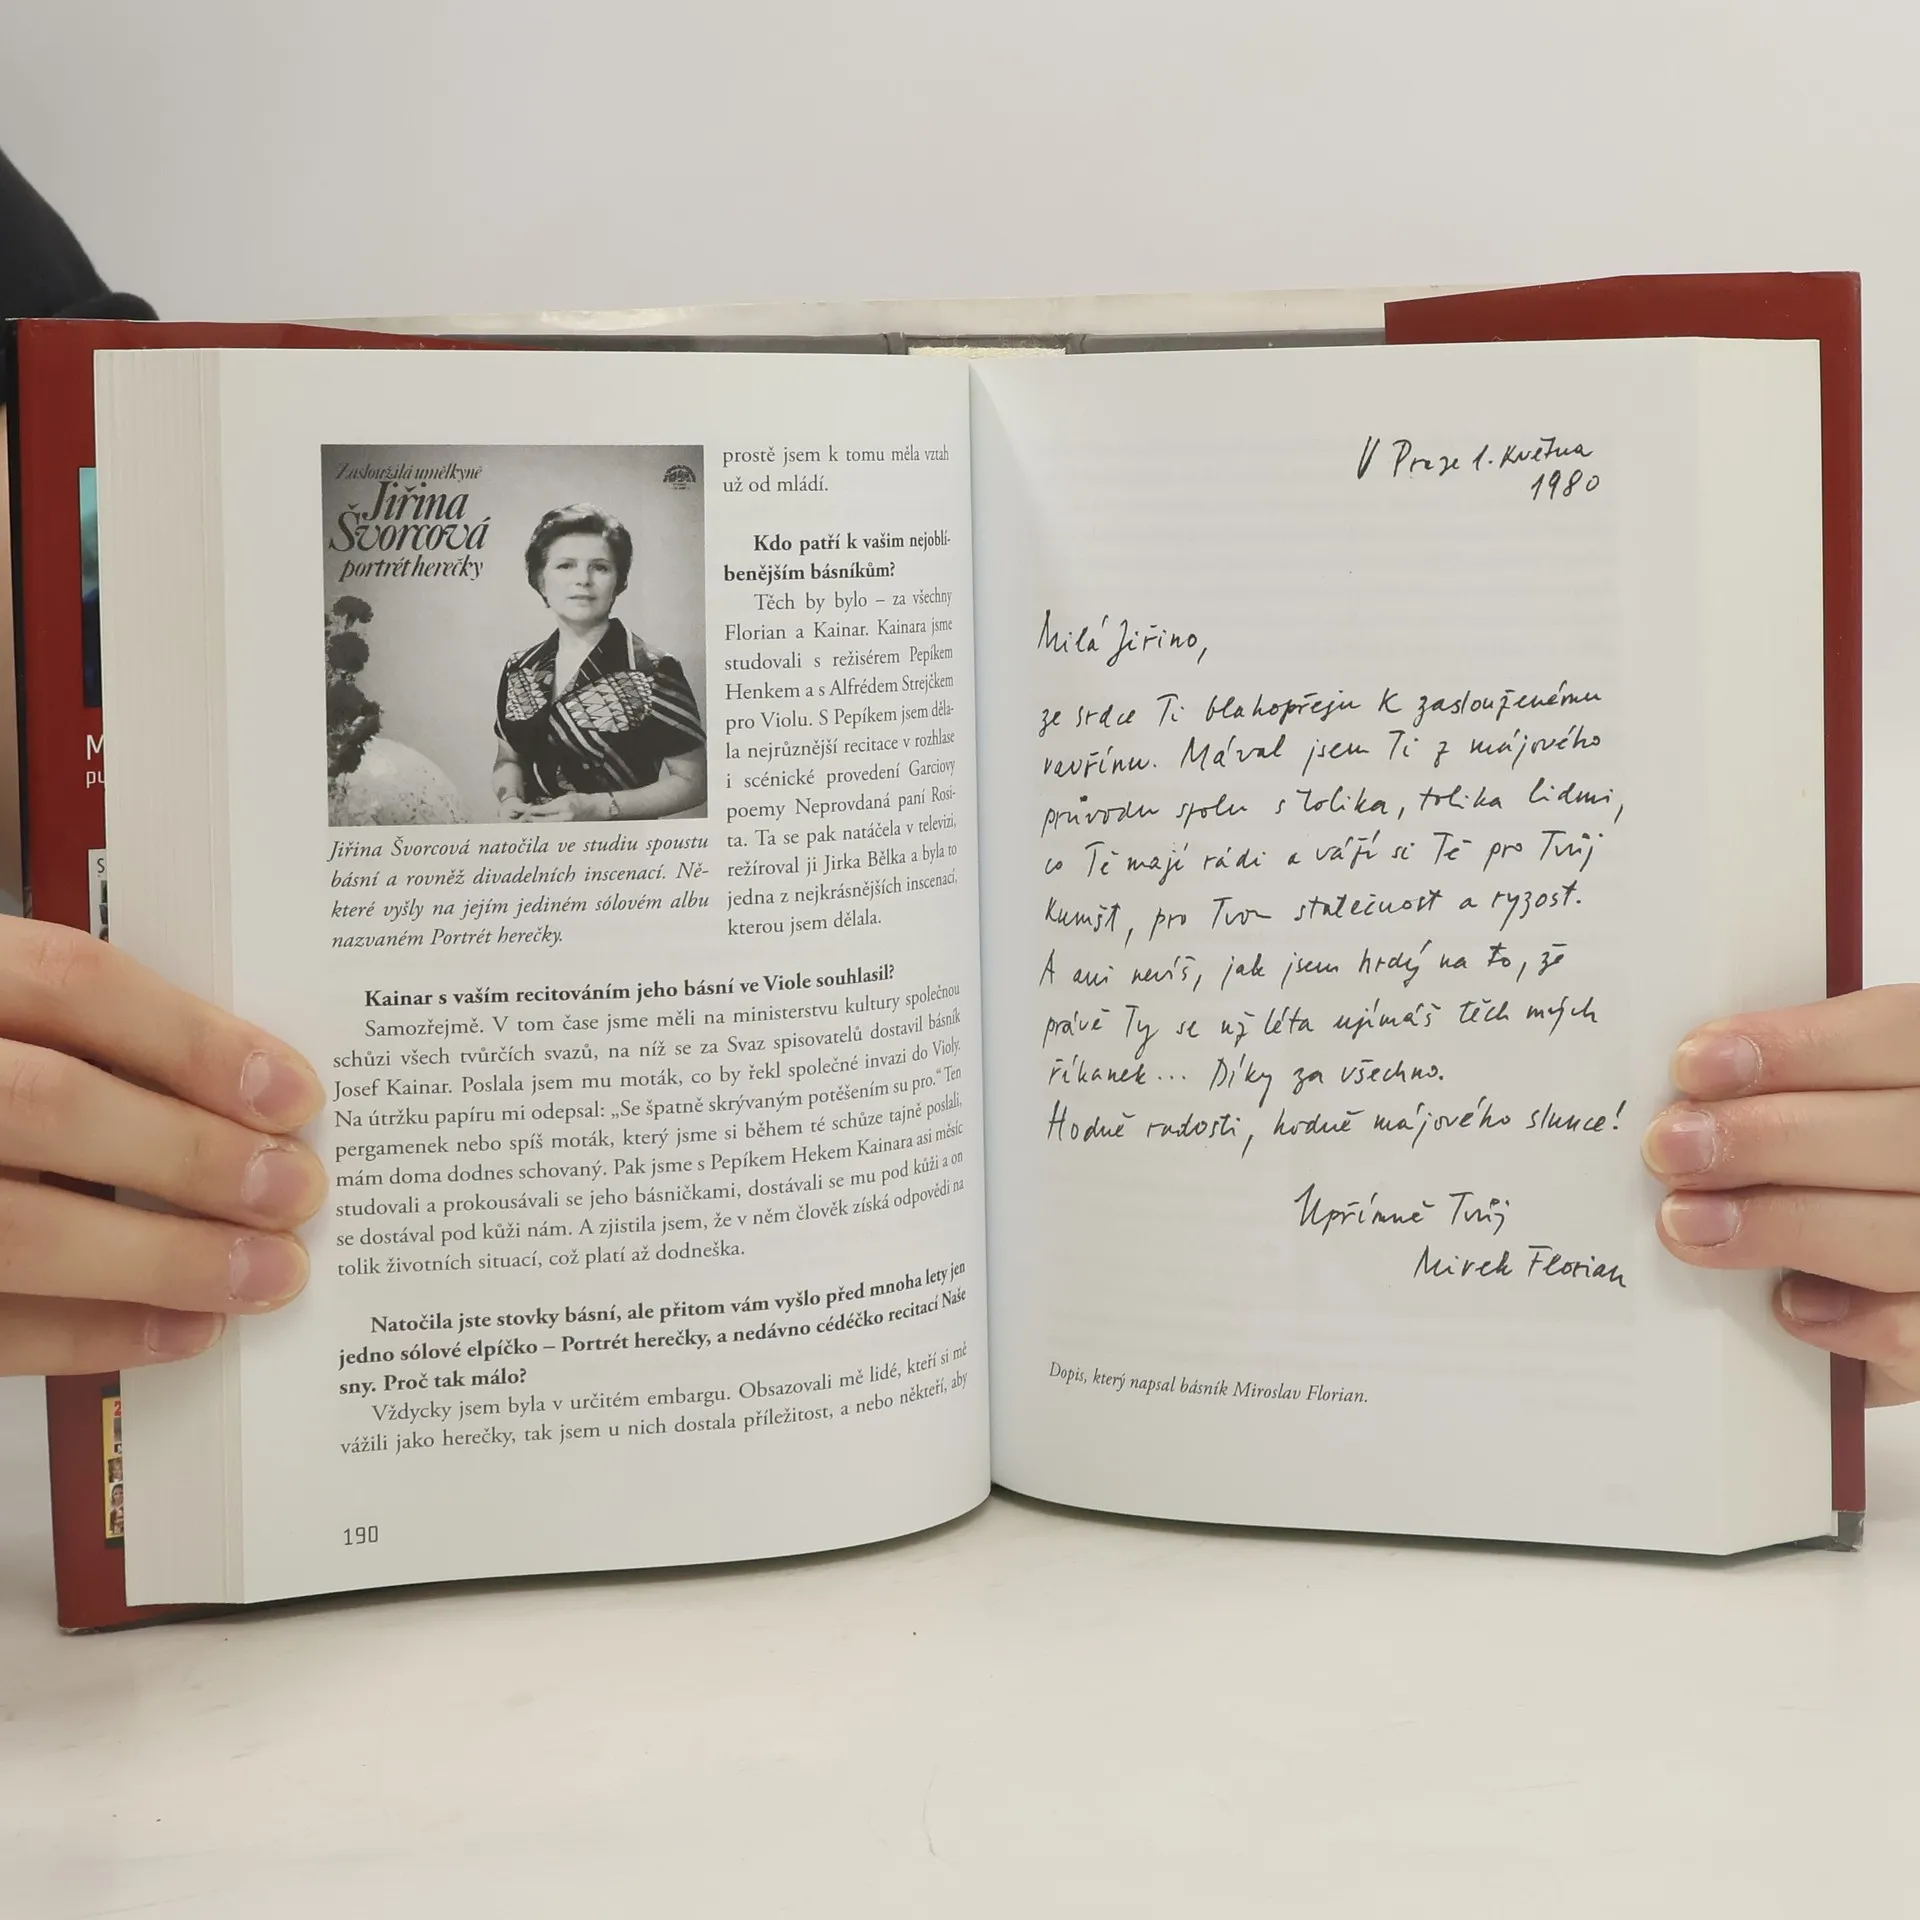 Zasloužilá umělkyně
Jiřina
Švorcová
portrét herečky
Jiřina Švorcová natočila ve studiu spoustu
básní a rovněž divadelních inscenací. Ně-
které vyšly na jejím jediném sólovém albu
nazvaném Portrét herečky.
prostě jsem k tomu měla vztah
už od mládí.
Kdo patří k vašim nejoblí-
benějším básníkům?
Těch by bylo – za všechny
Florian a Kainar. Kainara jsme
studovali s režisérem Pepíkem
Henkem a s Alfrédem Strejčkem
pro Violu. S Pepíkem jsem děla-
la nejrůznější recitace v rozhlase
i scénické provedení Garciovy
poemy Neprovdaná paní Rosi-
ta. Ta se pak natáčela v televizi,
režíroval ji Jirka Bělka a byla to
jedna z nejkrásnějších inscenací,
kterou jsem dělala.
Kainar s vaším recitováním jeho básní ve Viole souhlasil?
Samozřejmě. V tom čase jsme měli na ministerstvu kultury společnou
schůzi všech tvůrčích svazů, na níž se za Svaz spisovatelů dostavil básník
Josef Kainar. Poslala jsem mu moták, co by řekl společné invazi do Violy.
Na útržku papíru mi odepsal: „Se špatně skrývaným potěšením su pro.“ Ten
pergamenek nebo spíš moták, který jsme si během té schůze tajně poslali,
mám doma dodnes schovaný. Pak jsme s Pepíkem Hekem Kainara asi měsíc
studovali a prokousávali se jeho básničkami, dostávali se mu pod kůži a on
se dostával pod kůži nám. A zjistila jsem, že v něm člověk získá odpovědi na
tolik životních situací, což platí až dodneška.
Natočila jste stovky básní, ale přitom vám vyšlo před mnoha lety jen
jedno sólové elpíčko – Portrét herečky, a nedávno cédéčko recitací Naše
sny. Proč tak málo?
Vždycky jsem byla v určitém embargu. Obsazovali mě lidé, kteří si mě
vážili jako herečky, tak jsem u nich dostala příležitost, a nebo někteří, aby
190
V Praze 1. května
1980
Milá Jiřino,
ze srdce Ti blahopřeju k zaslouženému
vavřínu. Mával jsem Ti z májového
průvodu spolu s tolika, tolika lidmi,
co Tě mají rádi a váží si Tě pro Tvůj
kumšt, pro Tvou statečnost a ryzost.
A ani nevíš, jak jsem hrdý na to, že
právě Ty se už léta ujímáš těch mých
říkanek... Díky za všechno.
Hodně radosti, hodně májového slunce!
Upřímně Tvůj
Mirek Florian
Dopis, který napsal básník Miroslav Florian.